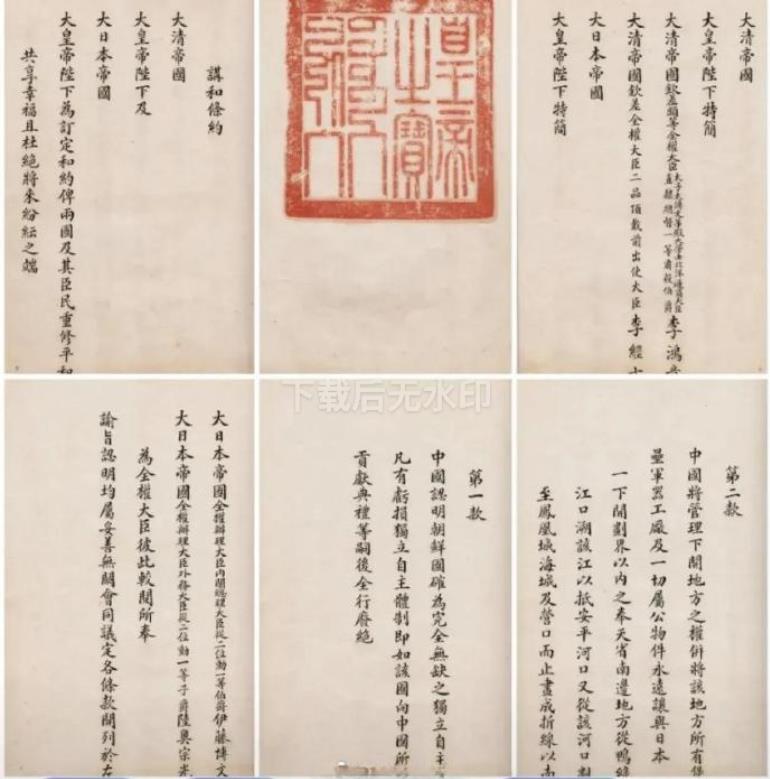 講和條約
大清帝國
大皇帝陛下及
大日本帝國
大皇帝陛下為訂定和約俾兩國及其臣民重修平和
共享幸福且杜絕將來紛紜之端
皇帝之寶
大清帝國
大皇帝陛下特簡
大清帝國欽差頭等全權大臣太子太傅文華殿大學士北洋通商大臣直隸總督一等肅毅伯爵李鴻
大清帝國欽差全權大臣二品頂戴前出使大臣李經
大日本帝國
大皇帝陛下特簡
大日本帝國全權辦理大臣內閣總理大臣從二位勳一等伯爵伊藤博文
大日本帝國全權辦理大臣外務大臣從二位勳一等子爵陸奧宗光
為全權大臣彼此較閱所奉
諭旨認明均屬妥善無闕會同議定各條款開列於左
下载后无水印
第一款
中國認明朝鮮國確為完全無缺之獨立自主
凡有虧損獨立自主體制即如該國向中國所
貢獻典禮等嗣後全行廢絕
第二款
中國將管理下開地方之權併將該地方所有堡
壘軍器工廠及一切屬公物件永遠讓與日本
一下開劃界以內之奉天省南邊地方從鴨綠
江口溯該江以抵安平河口又從該河口劃
至鳳凰城海城及營口而止畫成折線以南